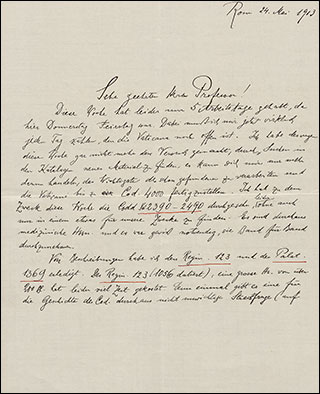 Rom 24. Mai 1913
Sehr geehrter Herr Professor!
Diese Woche hat leider nur 5 Arbeitstage gehabt, da
hier Donnerstag Feiertag war. Dabei muss ich mir jetzt wirklich
jeden Tag zählen, den die Vaticana noch offen ist. Ich habe deswegen
diese Woche gar nicht mehr den Versuch gemacht, durch Suchen in
den Katalogen neues Material zu finden. Es kann sich mir nur noch
darum handeln, das Wichtigste des oben gefundenen zu verarbeiten und
die Vaticana bis zu Cod 4000 fertigzustellen. Ich hab zu dem
Zweck diese Woche die Codd 2390-2490 durchgesehen und
nur in einem etwas für unsere Zwecke zu finden. Es sind durchaus
medizinische Hss und es war gewiss notwendig, sie Band für Band
durchzunehmen.
Von Beschreibungen habe ich den Regin. 123 und den Palat.
1369 erledigt. Der Regin 123 (1056 datiert), eine grosse Hs. von über
Bll. hat leider viel Zeit gekostet. Denn einmal gibt es eine für
die Geschichte des Cod. durchaus nicht unwichtige Streitfrage (auf